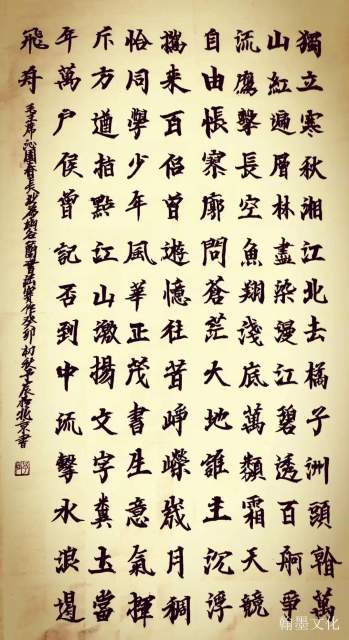 獨立寒秋湘江北去橘子洲頭看萬
山紅遍層林盡染漫江碧透百舸爭
流鷹擊長空魚翔淺底萬類霜天競
自由悵寥廓問蒼茫大地誰主沉浮
攜来百侣曾遊憶往昔崢嶸歲月稠
恰同學少年風華正茂書生意氣揮
斥方遒指點江山激揚文字糞土當
年萬户侯曾記否到中流擊水浪遏
飛舟
毛主席沁園春長沙
癸卯初
翰墨文化